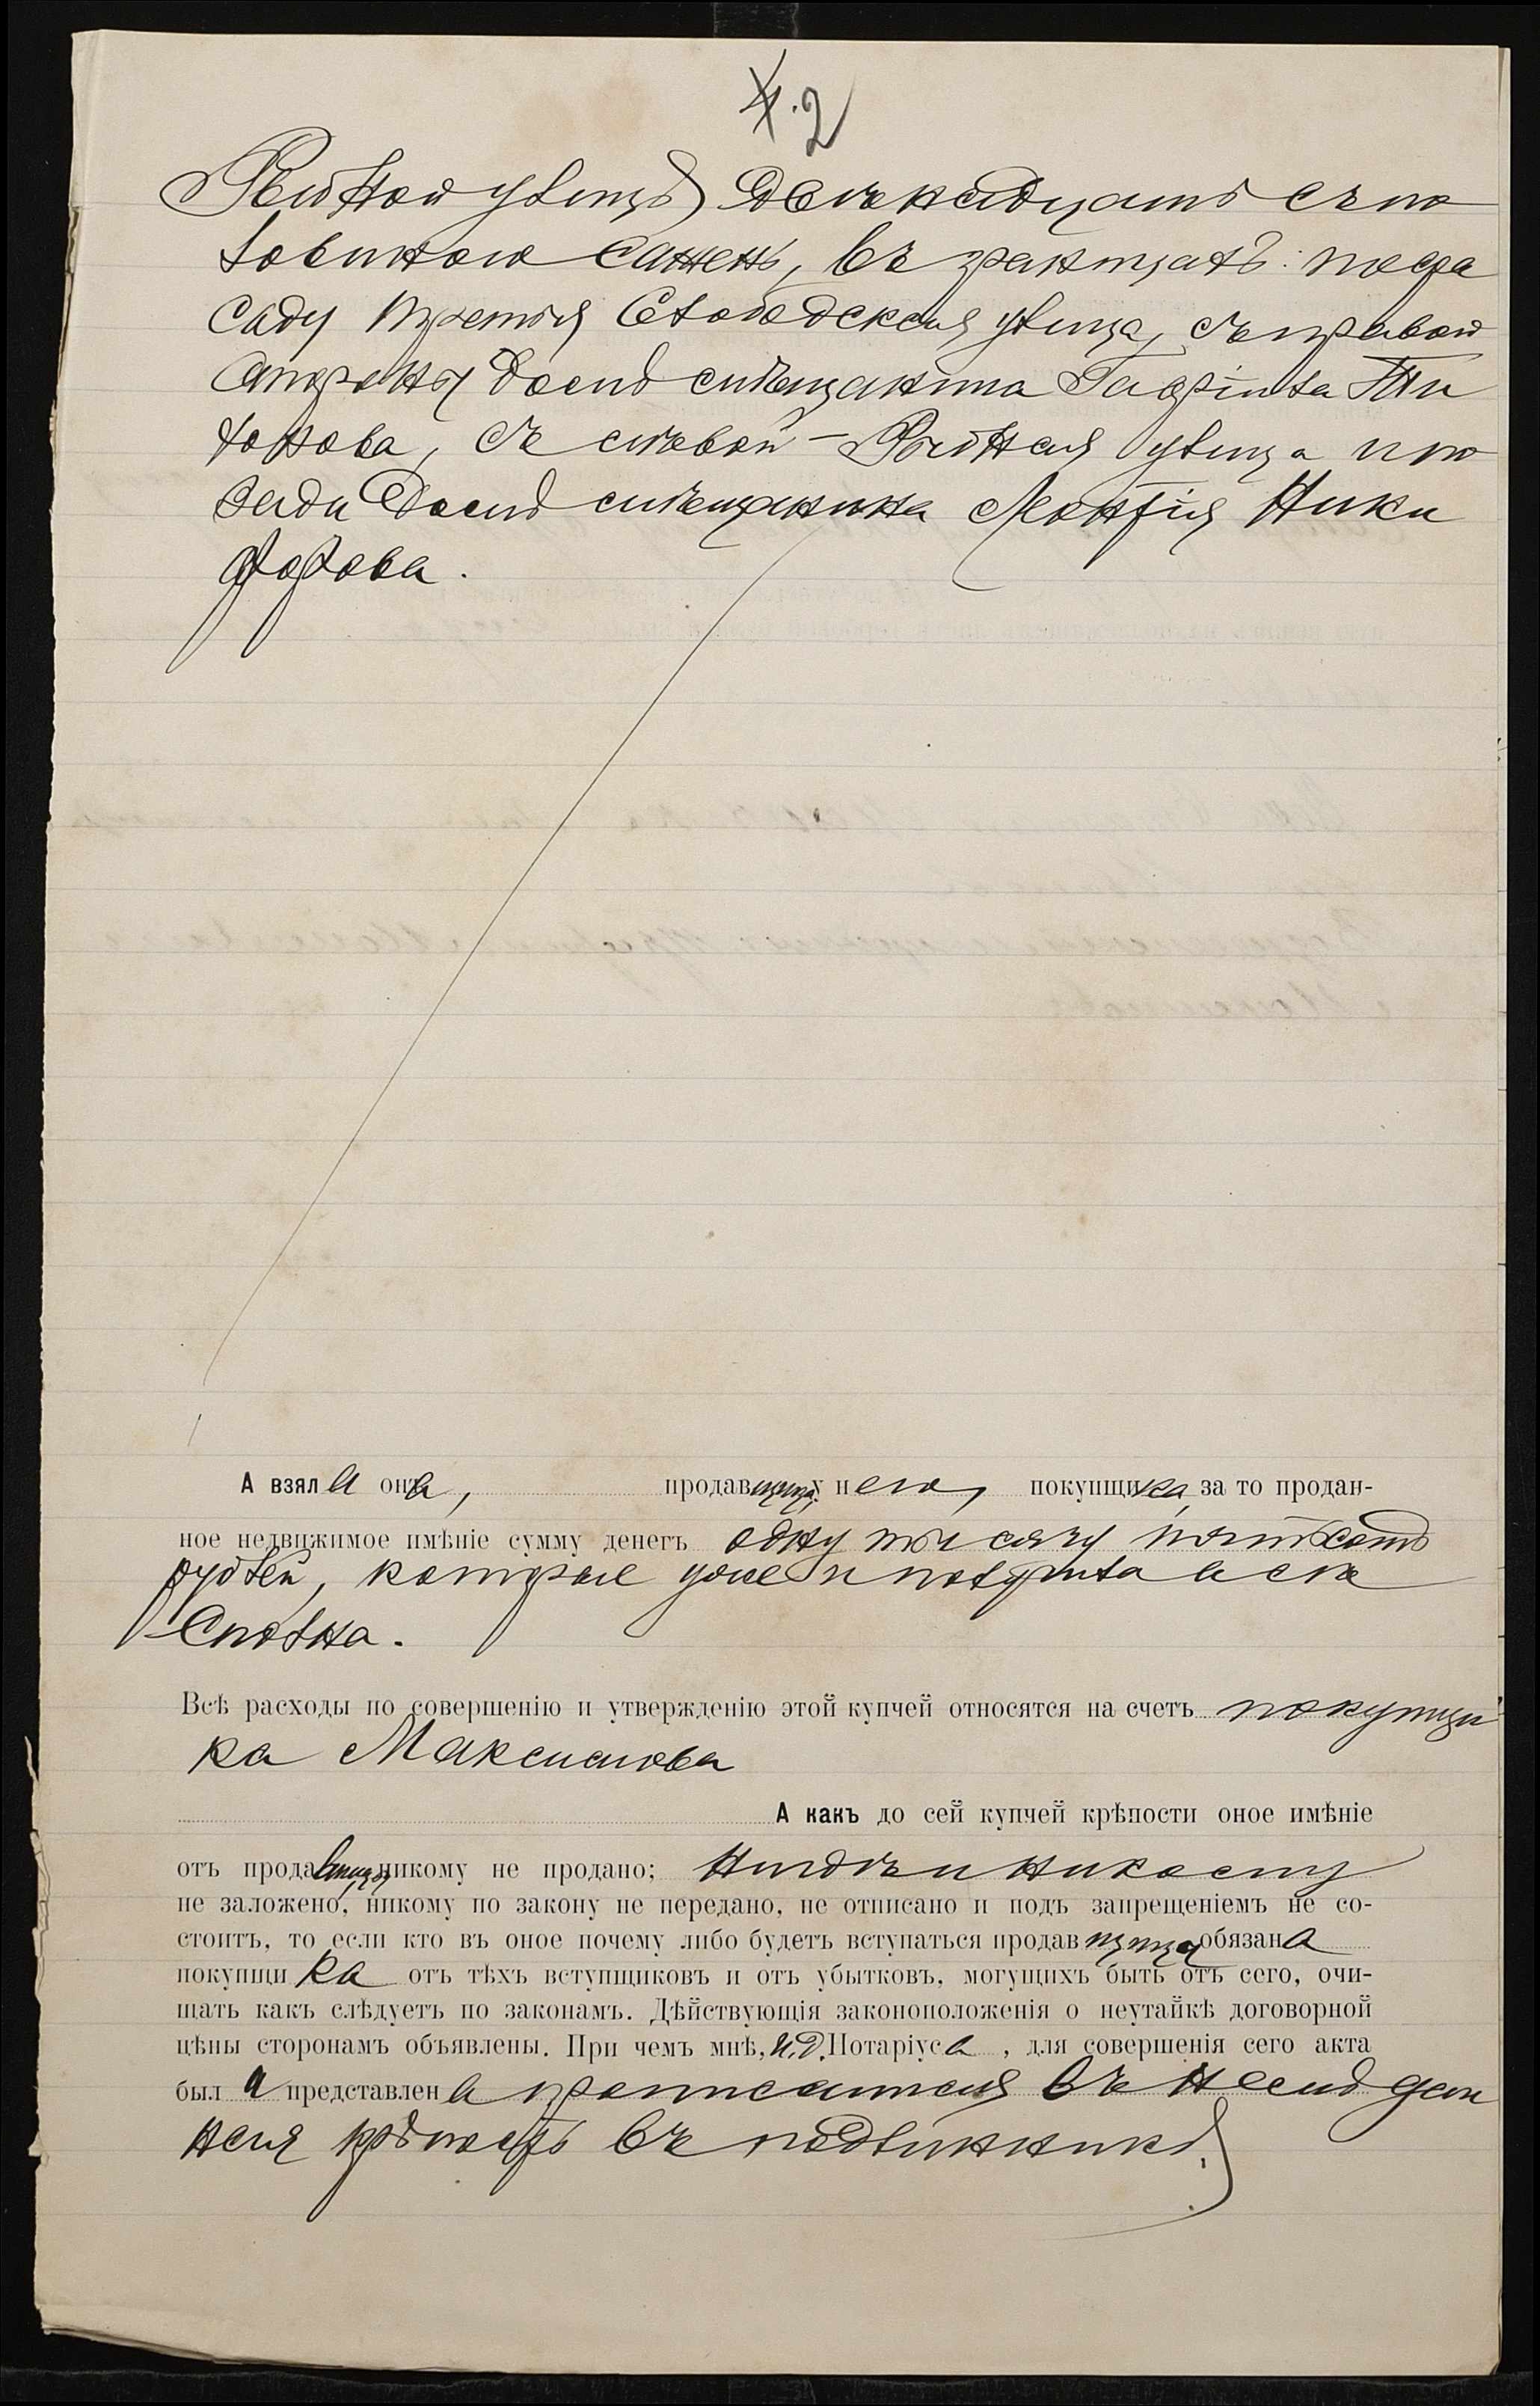 4. 2
Рыбной улицѣ) двѣнадцать съ по
ловиною сажень, въ границахъ: по фа
саду третья Слободская улица, съ правой
стороны домъ мѣщанина Гавріила Ти
хонова, съ лѣвой — Рыбная улица и по
зади домъ мѣщанина Леонтія Ники
форова.
А взяла она, продавщица, у него, покупщика, за то продан-
ное недвижимое имѣніе сумму денегъ одну тысячу пятьсотъ
рублей, которые уже и получила вся
сполна.
Всѣ расходы по совершенію и утвержденію этой купчей относятся на счетъ покупщи
ка Максимова
А какъ до сей купчей крѣпости оное имѣніе
отъ продавщицы никому не продано; нигдѣ и никому
не заложено, никому по закону не передано, не отписано и подъ запрещеніемъ не со-
стоитъ, то если кто въ оное почему либо будетъ вступаться продавщица обязана
покупщика отъ тѣхъ вступщиковъ и отъ убытковъ, могущихъ быть отъ сего, очи-
щать какъ слѣдуетъ по законамъ. Дѣйствующія законоположенія о неутайкѣ договорной
цѣны сторонамъ объявлены. При чемъ мнѣ, И. Д. Нотаріуса, для совершенія сего акта
была представлена прописанная въ немъ дан
ная крѣпость въ подлинникѣ.